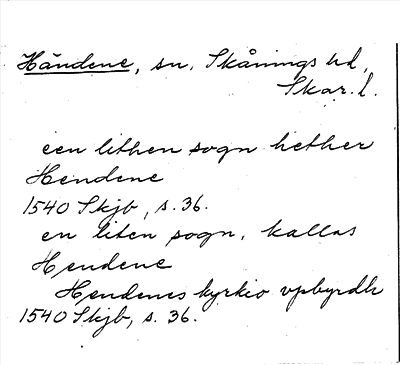 Händene, sn. Skånings hd,
Skar. l.
een lithen sogn hether
Hendene
1540 Skjb, s. 36.
en liten sogn, kallas
Hendene
Hendenes kyrkio vpbyrdh
1540 Skjb, s. 36.